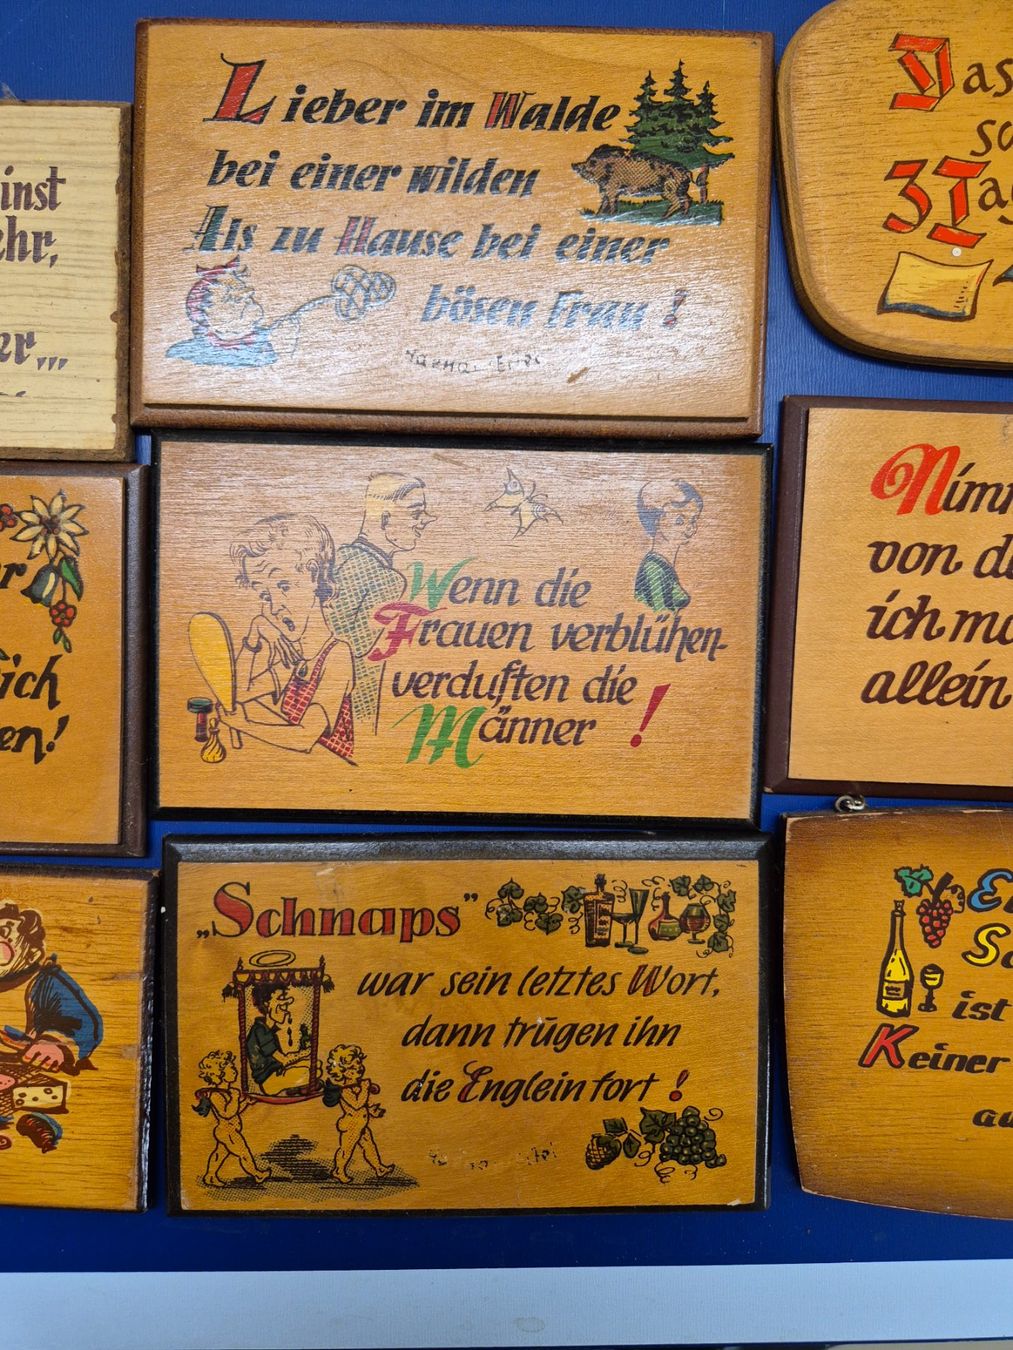 inst
ehr,
er...
Lieber im Walde
bei einer wilden
Als zu Hause bei einer
bösen Frau!
Das
so
3 Tag
er
ich
en!
Wenn die
Frauen verblühen-
verduften die
Männer!
Nimm
von d
ich mo
allein
„Schnaps"
war sein letztes Wort,
dann trūgen ihn
die Englein fort!
Sc
ist
Keiner
au